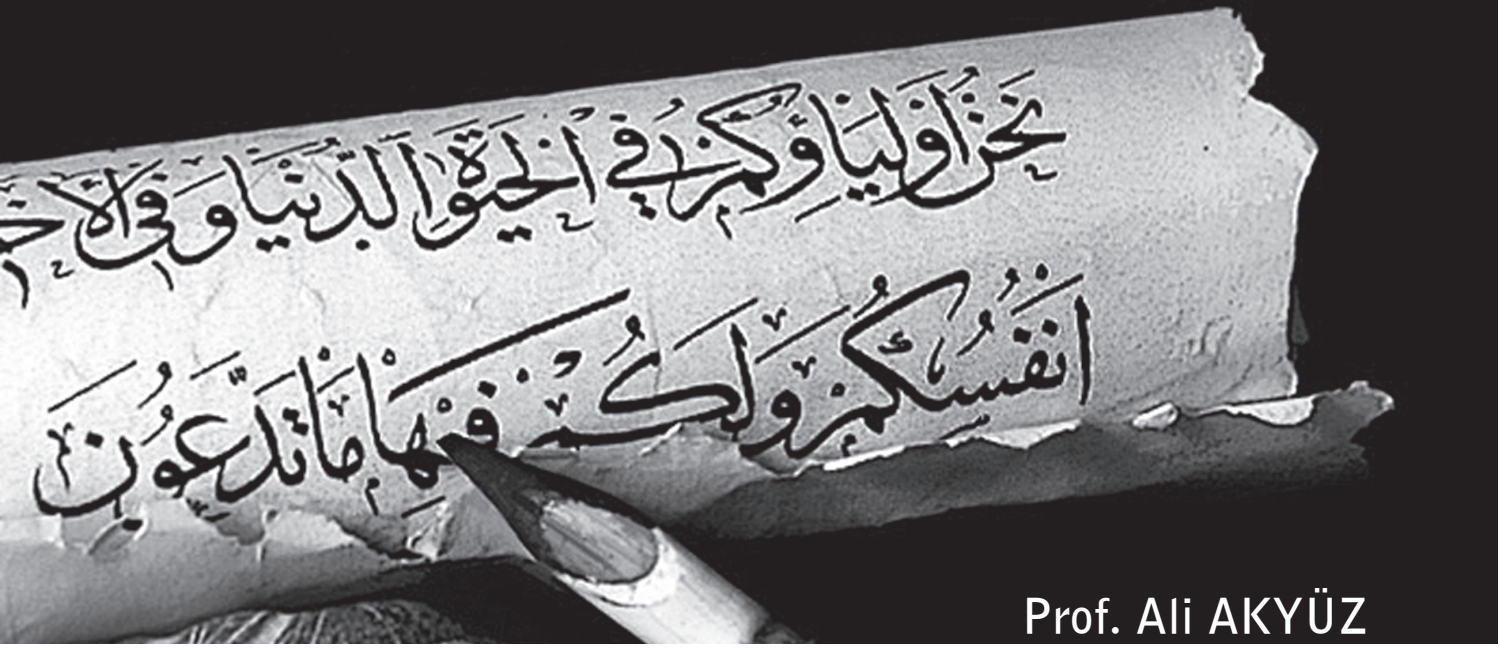 نَحْنُ اَوْلِيَاؤُكُمْ فِي الْحَيٰوةِ الدُّنْيَا وَفِي الْاٰخِ
اَنْفُسُكُمْ وَلَكُمْ فِيهَا مَا تَدَّعُونَ
Prof. Ali AKYÜZ